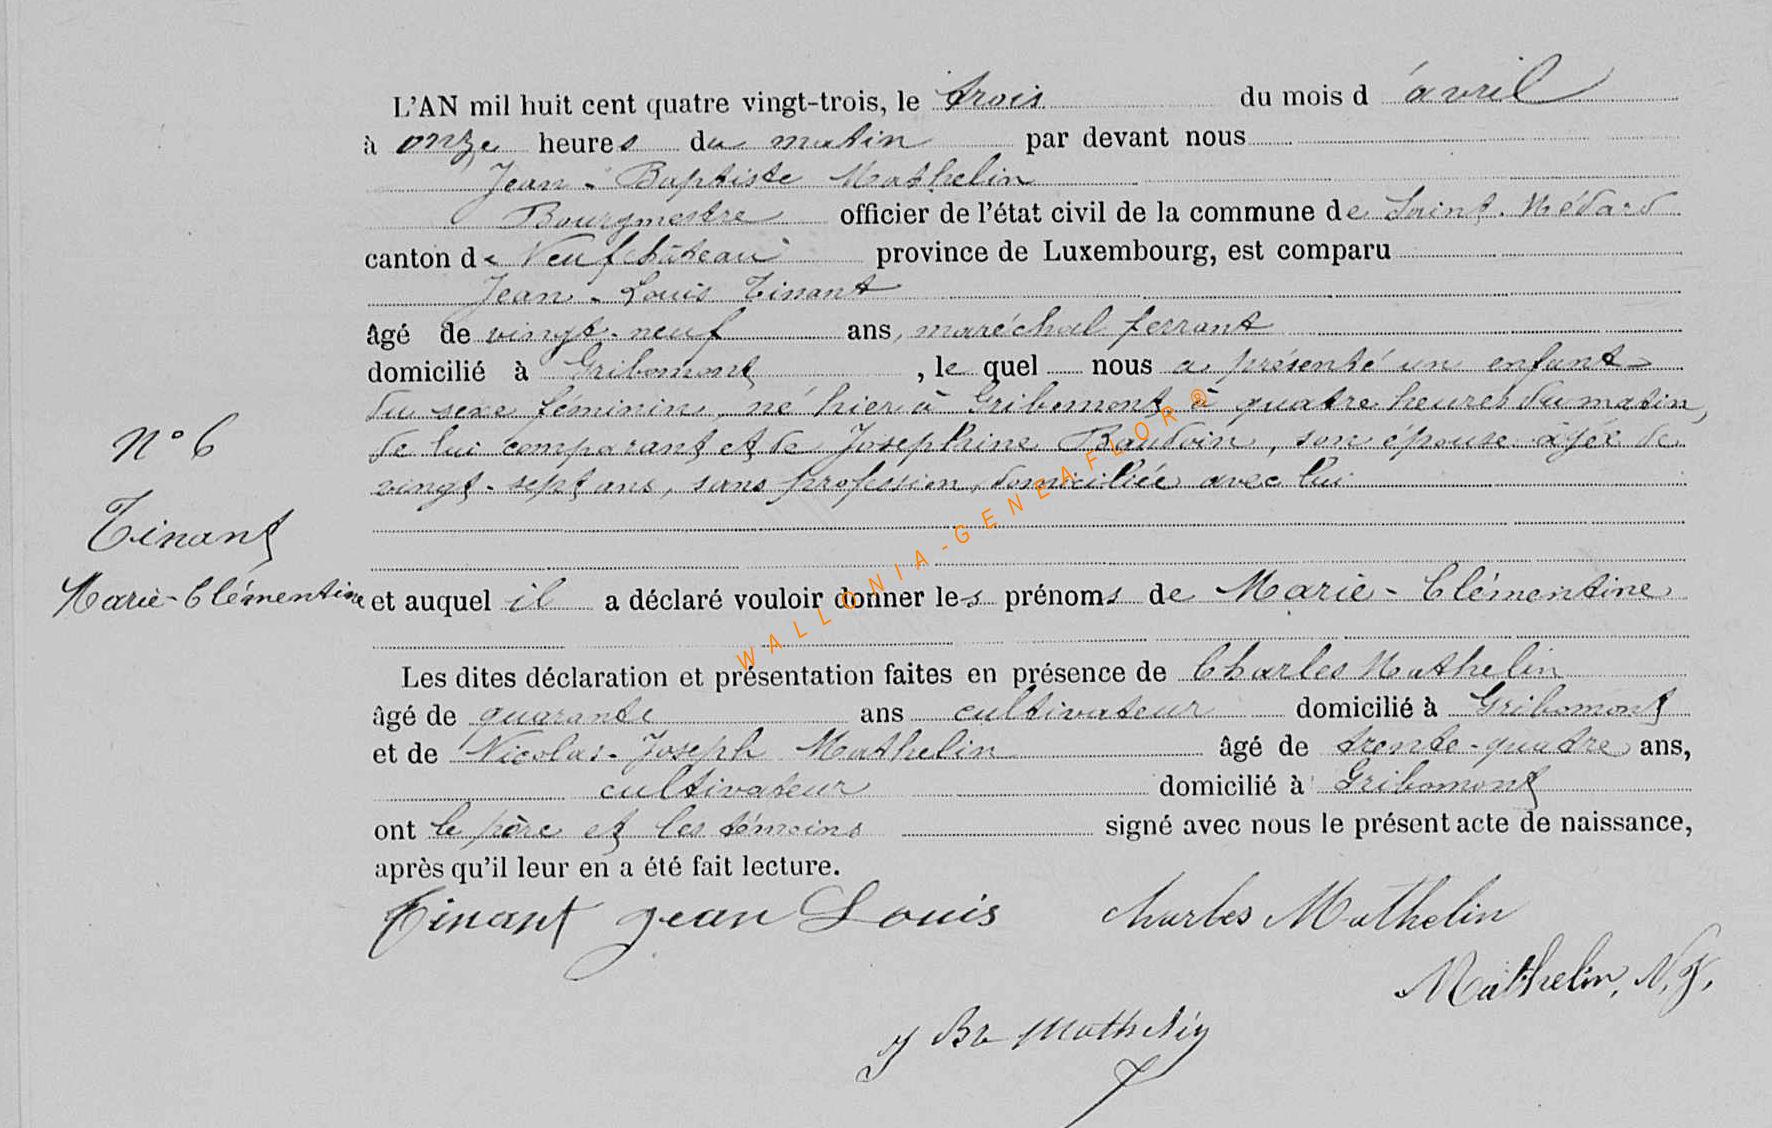 L'AN mil huit cent quatre vingt-trois, le trois du mois d'avril
à onze heures du matin par devant nous
Jean-Baptiste Mathelin
Bourgmestre officier de l'état civil de la commune de Saint-Médard
canton de Neufchâteau province de Luxembourg, est comparu
Jean-Louis Tinant
âgé de vingt-neuf ans, maréchal ferrant
domicilié à Gribomont, le quel nous a présenté un enfant
du sexe féminin, né hier à Gribomont à quatre heures du matin,
de lui comparant et de Josephine Baudoin, son épouse âgée de
vingt-sept ans, sans profession, domiciliée avec lui
N° 6
Tinant
Marie-Clémentine
et auquel il a déclaré vouloir donner les prénoms de Marie-Clémentine
Les dites déclaration et présentation faites en présence de Charles Mathelin
âgé de quarante ans cultivateur domicilié à Gribomont
et de Nicolas-Joseph Mathelin âgé de trente-quatre ans,
cultivateur domicilié à Gribomont
ont le père et les témoins signé avec nous le présent acte de naissance,
après qu'il leur en a été fait lecture.
Tinant jean Louis charles Mathelin
Mathelin, N. J.
J Bte Mathelin
WALLONIA-GENEAFLOR®